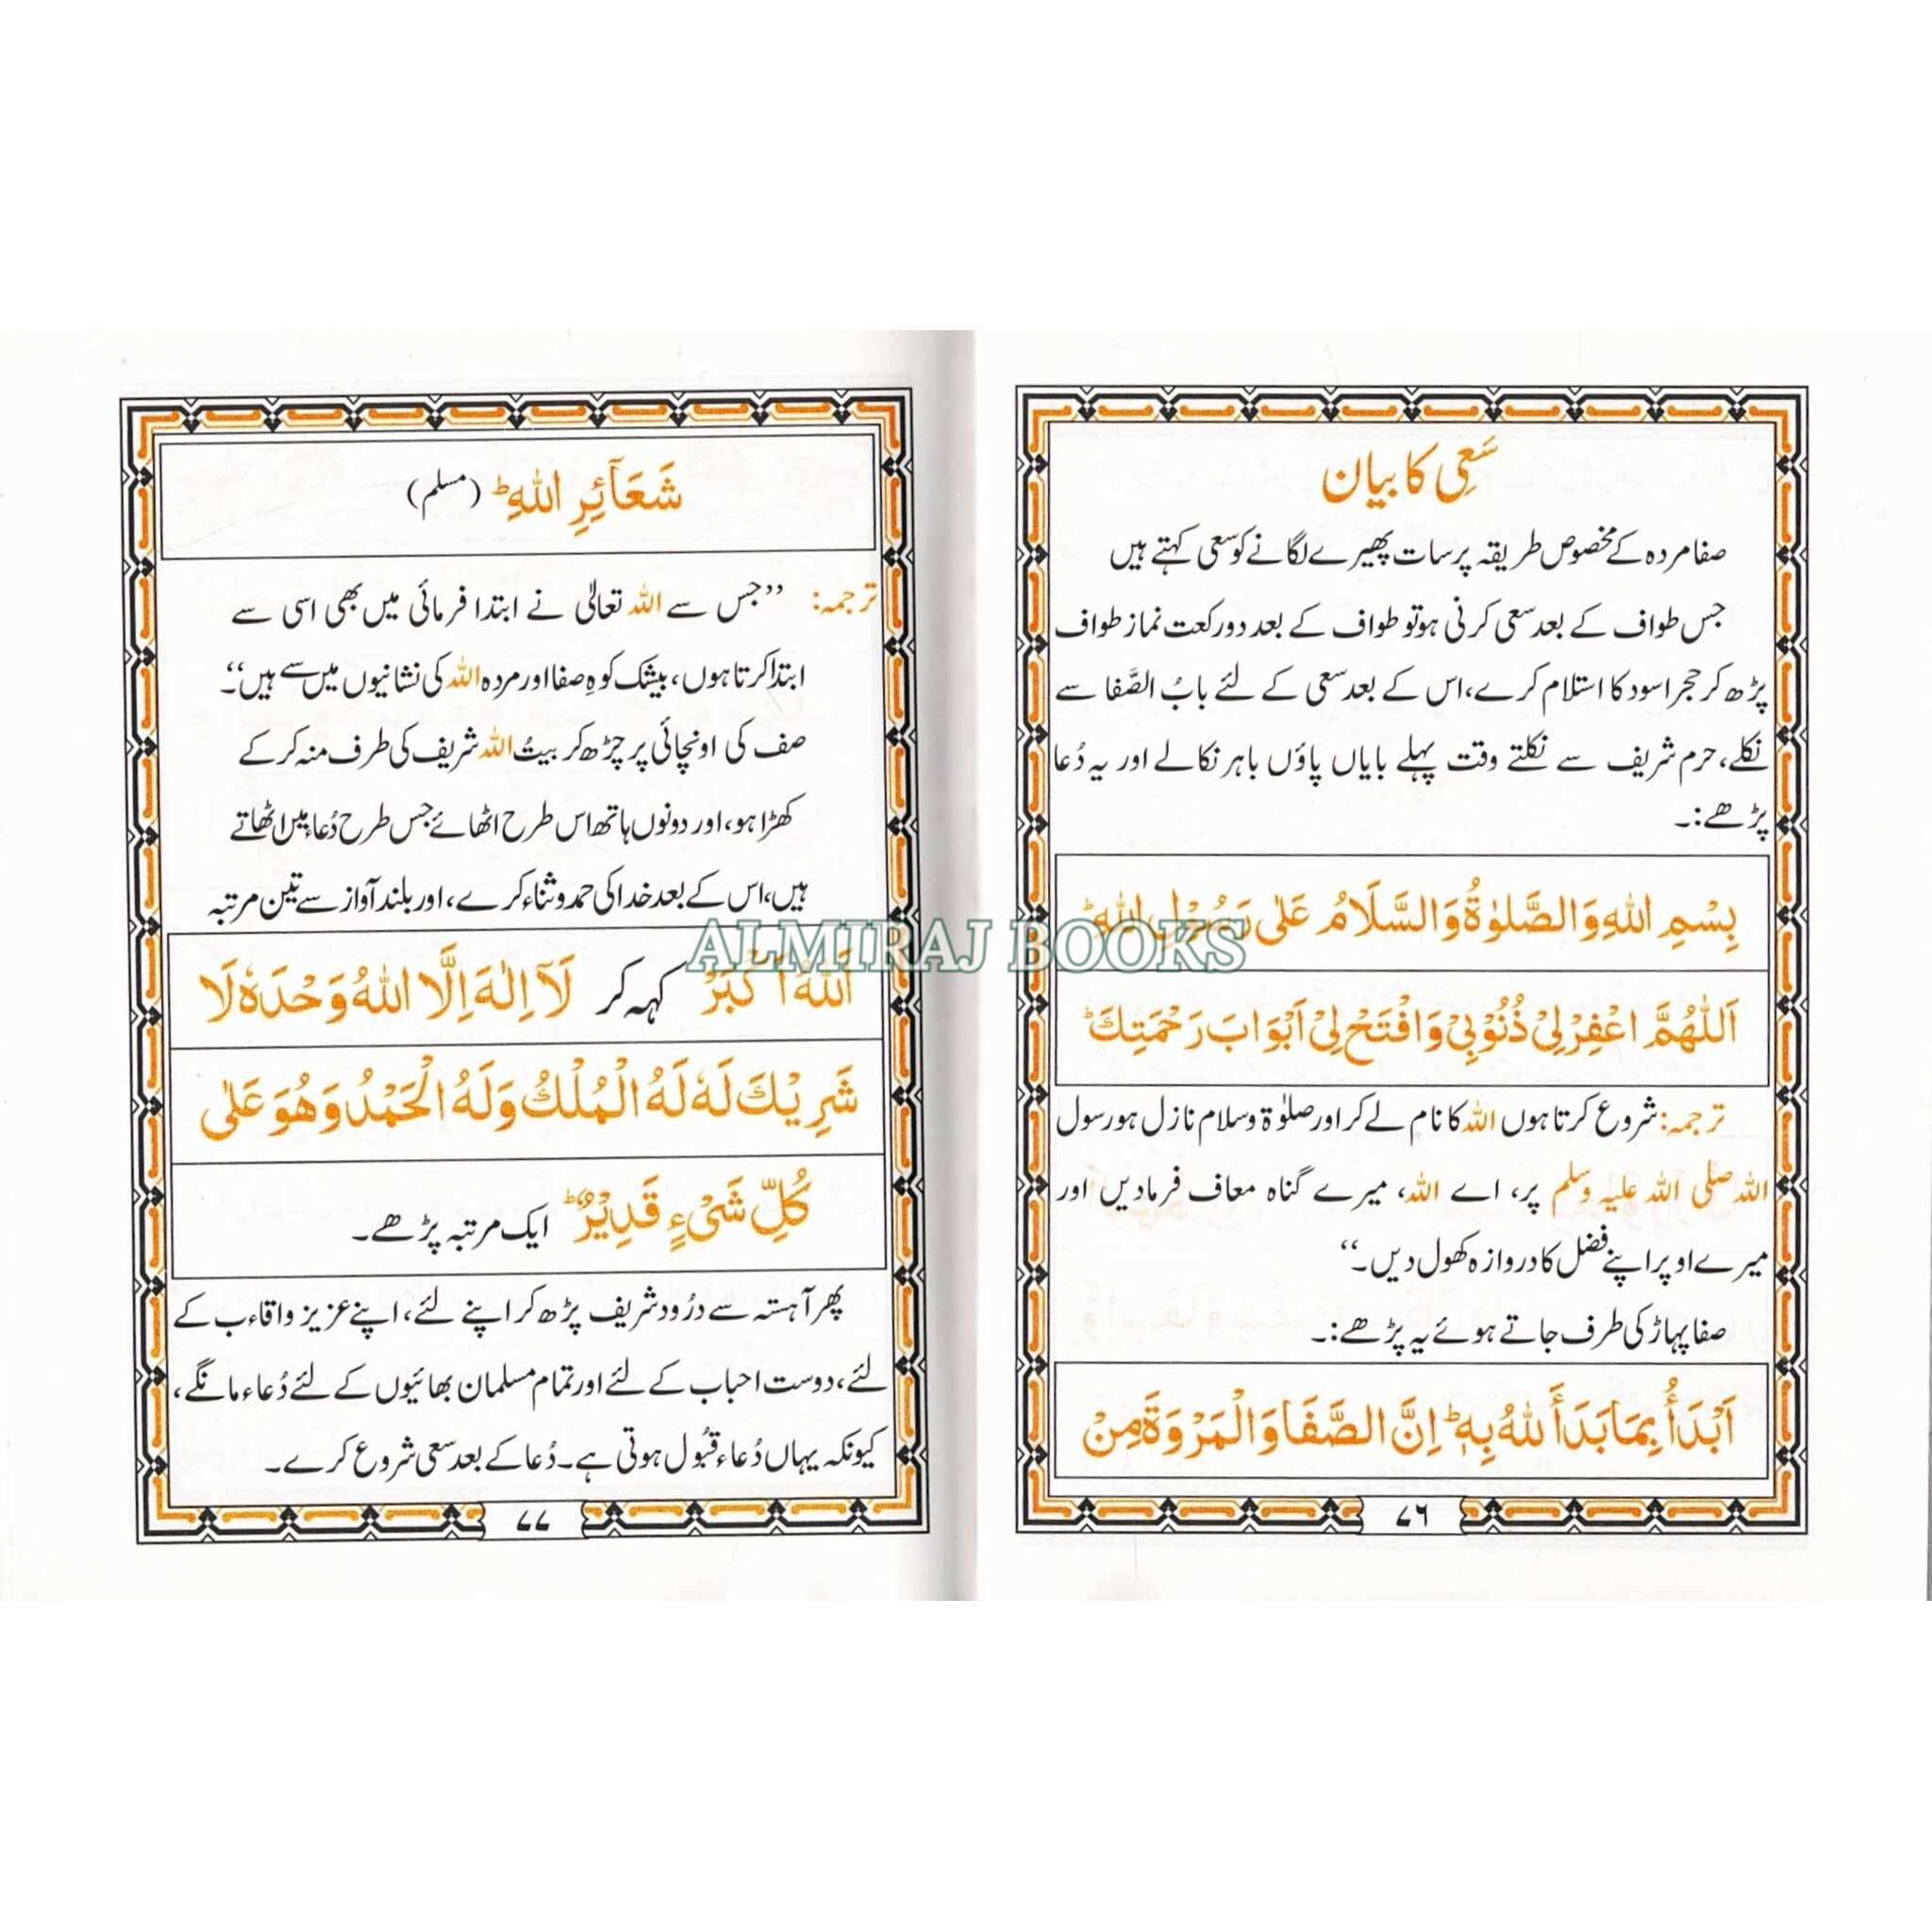 سَعِی کا بیان
صفا مردہ کے مخصوص طریقہ پر سات پھیرے لگانے کو سعی کہتے ہیں
جس طواف کے بعد سعی کرنی ہو تو طواف کے بعد دو رکعت نماز طواف
پڑھ کر حجر اسود کا استلام کرے، اس کے بعد سعی کے لئے بابُ الصَّفا سے
نکلے، حرم شریف سے نکلتے وقت پہلے بایاں پاؤں باہر نکالے اور یہ دُعا
پڑھے:۔
بِسْمِ اللّٰهِ وَالصَّلٰوةُ وَالسَّلَامُ عَلٰى رَسُوْلِ اللّٰهِ ؕ
اَللّٰهُمَّ اغْفِرْ لِىْ ذُنُوْبِىْ وَافْتَحْ لِىْ اَبْوَابَ رَحْمَتِكَ ؕ
ترجمہ: شروع کرتا ہوں اللہ کا نام لے کر اور صلوٰۃ و سلام نازل ہو رسول
اللہ صلی اللہ علیہ وسلم پر، اے اللہ، میرے گناہ معاف فرمادیں اور
میرے اوپر اپنے فضل کا دروازہ کھول دیں۔“
صفا پہاڑ کی طرف جاتے ہوئے یہ پڑھے:۔
اَبْدَأُ بِمَا بَدَأَ اللّٰهُ بِهٖ ؕ اِنَّ الصَّفَا وَالْمَرْوَةَ مِنْ
۷۶
شَعَآئِرِ اللّٰهِ ؕ (مسلم)
ترجمہ: ”جس سے اللہ تعالیٰ نے ابتدا فرمائی میں بھی اسی سے
ابتدا کرتا ہوں، بیشک کوہِ صفا اور مردہ اللہ کی نشانیوں میں سے ہیں“۔
صف کی اونچائی پر چڑھ کر بیتُ اللہ شریف کی طرف منہ کر کے
کھڑا ہو، اور دونوں ہاتھ اس طرح اٹھائے جس طرح دُعاء میں اٹھاتے
ہیں، اس کے بعد خدا کی حمد و ثناء کرے، اور بلند آواز سے تین مرتبہ
اَللّٰهُ اَكْبَرْ کہہ کر لَآ اِلٰهَ اِلَّا اللّٰهُ وَحْدَهٗ لَا
شَرِيْكَ لَهٗ لَهُ الْمُلْكُ وَلَهُ الْحَمْدُ وَهُوَ عَلٰى
كُلِّ شَىْءٍ قَدِيْرٌ ؕ ایک مرتبہ پڑھے۔
پھر آہستہ سے درُود شریف پڑھ کر اپنے لئے، اپنے عزیز واقاءب کے
لئے، دوست احباب کے لئے اور تمام مسلمان بھائیوں کے لئے دُعاء مانگے،
کیونکہ یہاں دُعاء قبُول ہوتی ہے۔ دُعا کے بعد سعی شروع کرے۔
۷۷
ALMIRAJ BOOKS